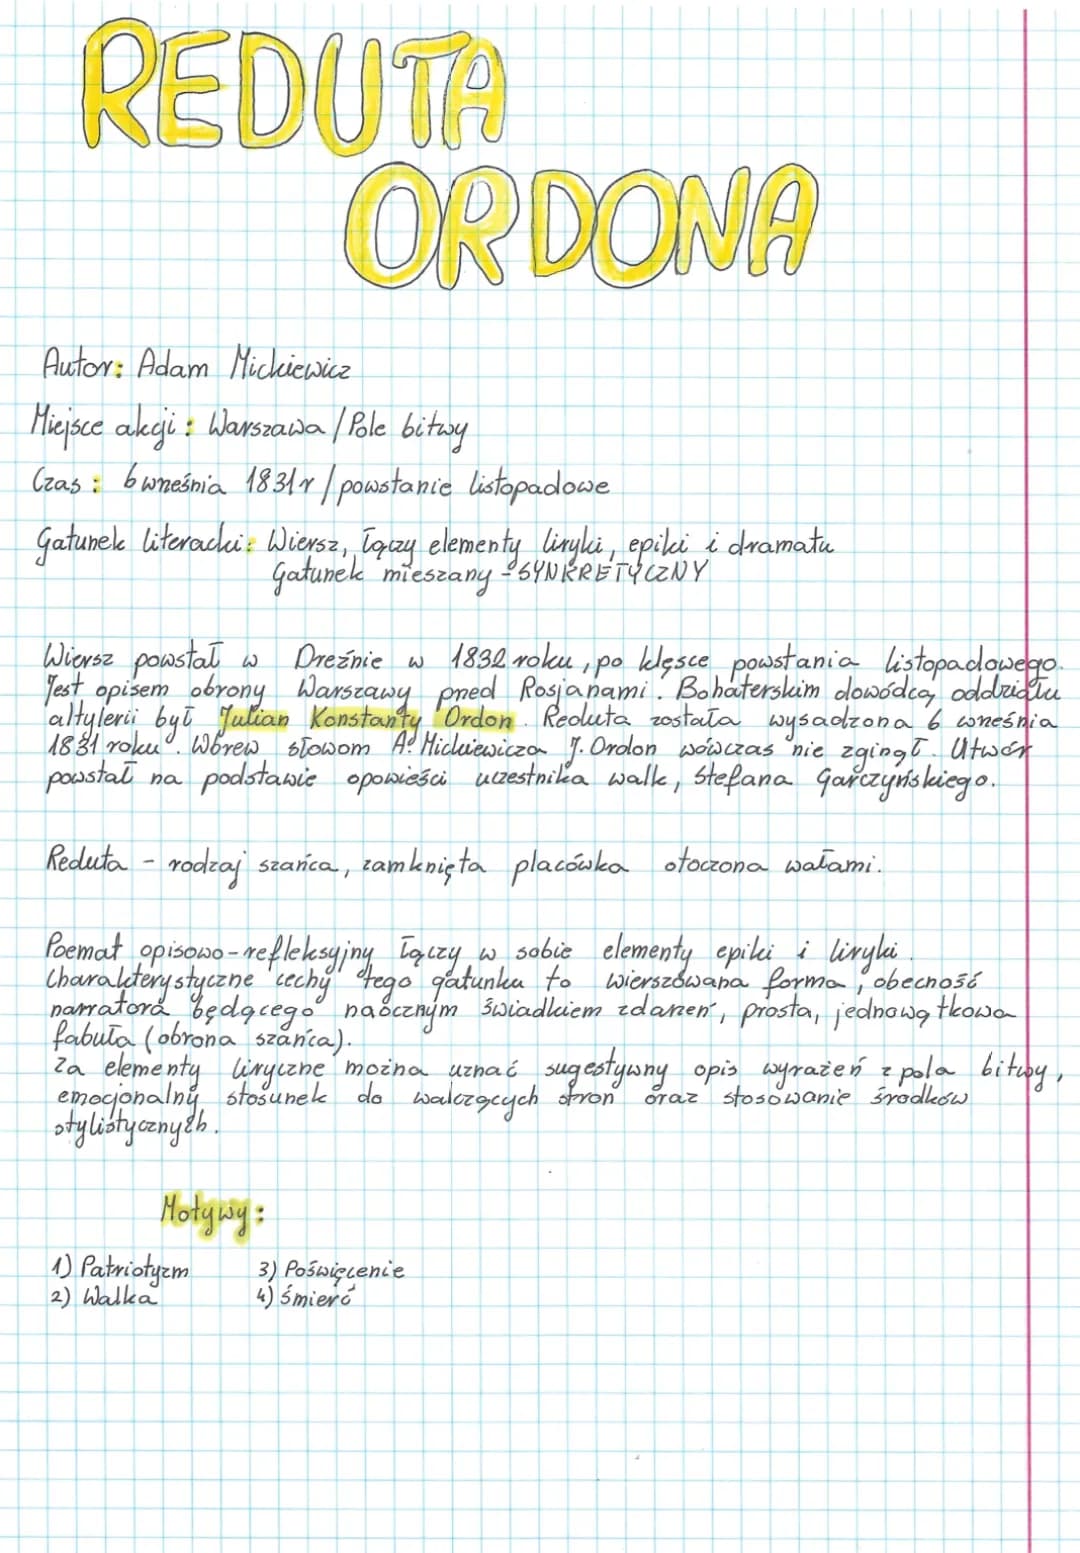 REDUTA
ORDONA
Autor: Adam Mickiewicz
Miejsce akcji: Warszawa / Pole bitwy
Czas: 6 września 1831r / powstanie listopadowe
Gatunek literacki: Wiersz, łączy elementy liryki, epiki i dramatu
Gatunek mieszany - SYNKRETYCZNY
Wiersz powstał w Dreźnie w 1832 roku, po klęsce powstania listopadowego.
Jest opisem obrony Warszawy przed Rosjanami. Bohaterskim dowódcą oddziału
altylerii był Julian Konstanty Ordon. Reduta została wysadzona 6 września
1831 roku. Wbrew słowom A. Mickiewicza J. Ordon wówczas nie zginął. Utwór
powstał na podstawie opowieści uczestnika walk, Stefana Garczyńskiego.
Reduta - rodzaj szańca, zamknięta placówka otoczona wałami.
Poemat opisowo-refleksyjny łączy w sobie elementy epiki i liryki.
Charakterystyczne cechy tego gatunku to wierszowana forma, obecność
narratora będącego naocznym świadkiem zdarzeń, prosta, jednowątkowa
fabuła (obrona szańca).
Za elementy liryczne można uznać sugestywny opis wyrażeń z pola bitwy,
emocjonalny stosunek do walczących stron oraz stosowanie środków
stylistycznych.
Motywy:
1) Patriotyzm 3) Poświęcenie
2) Walka 4) śmierć